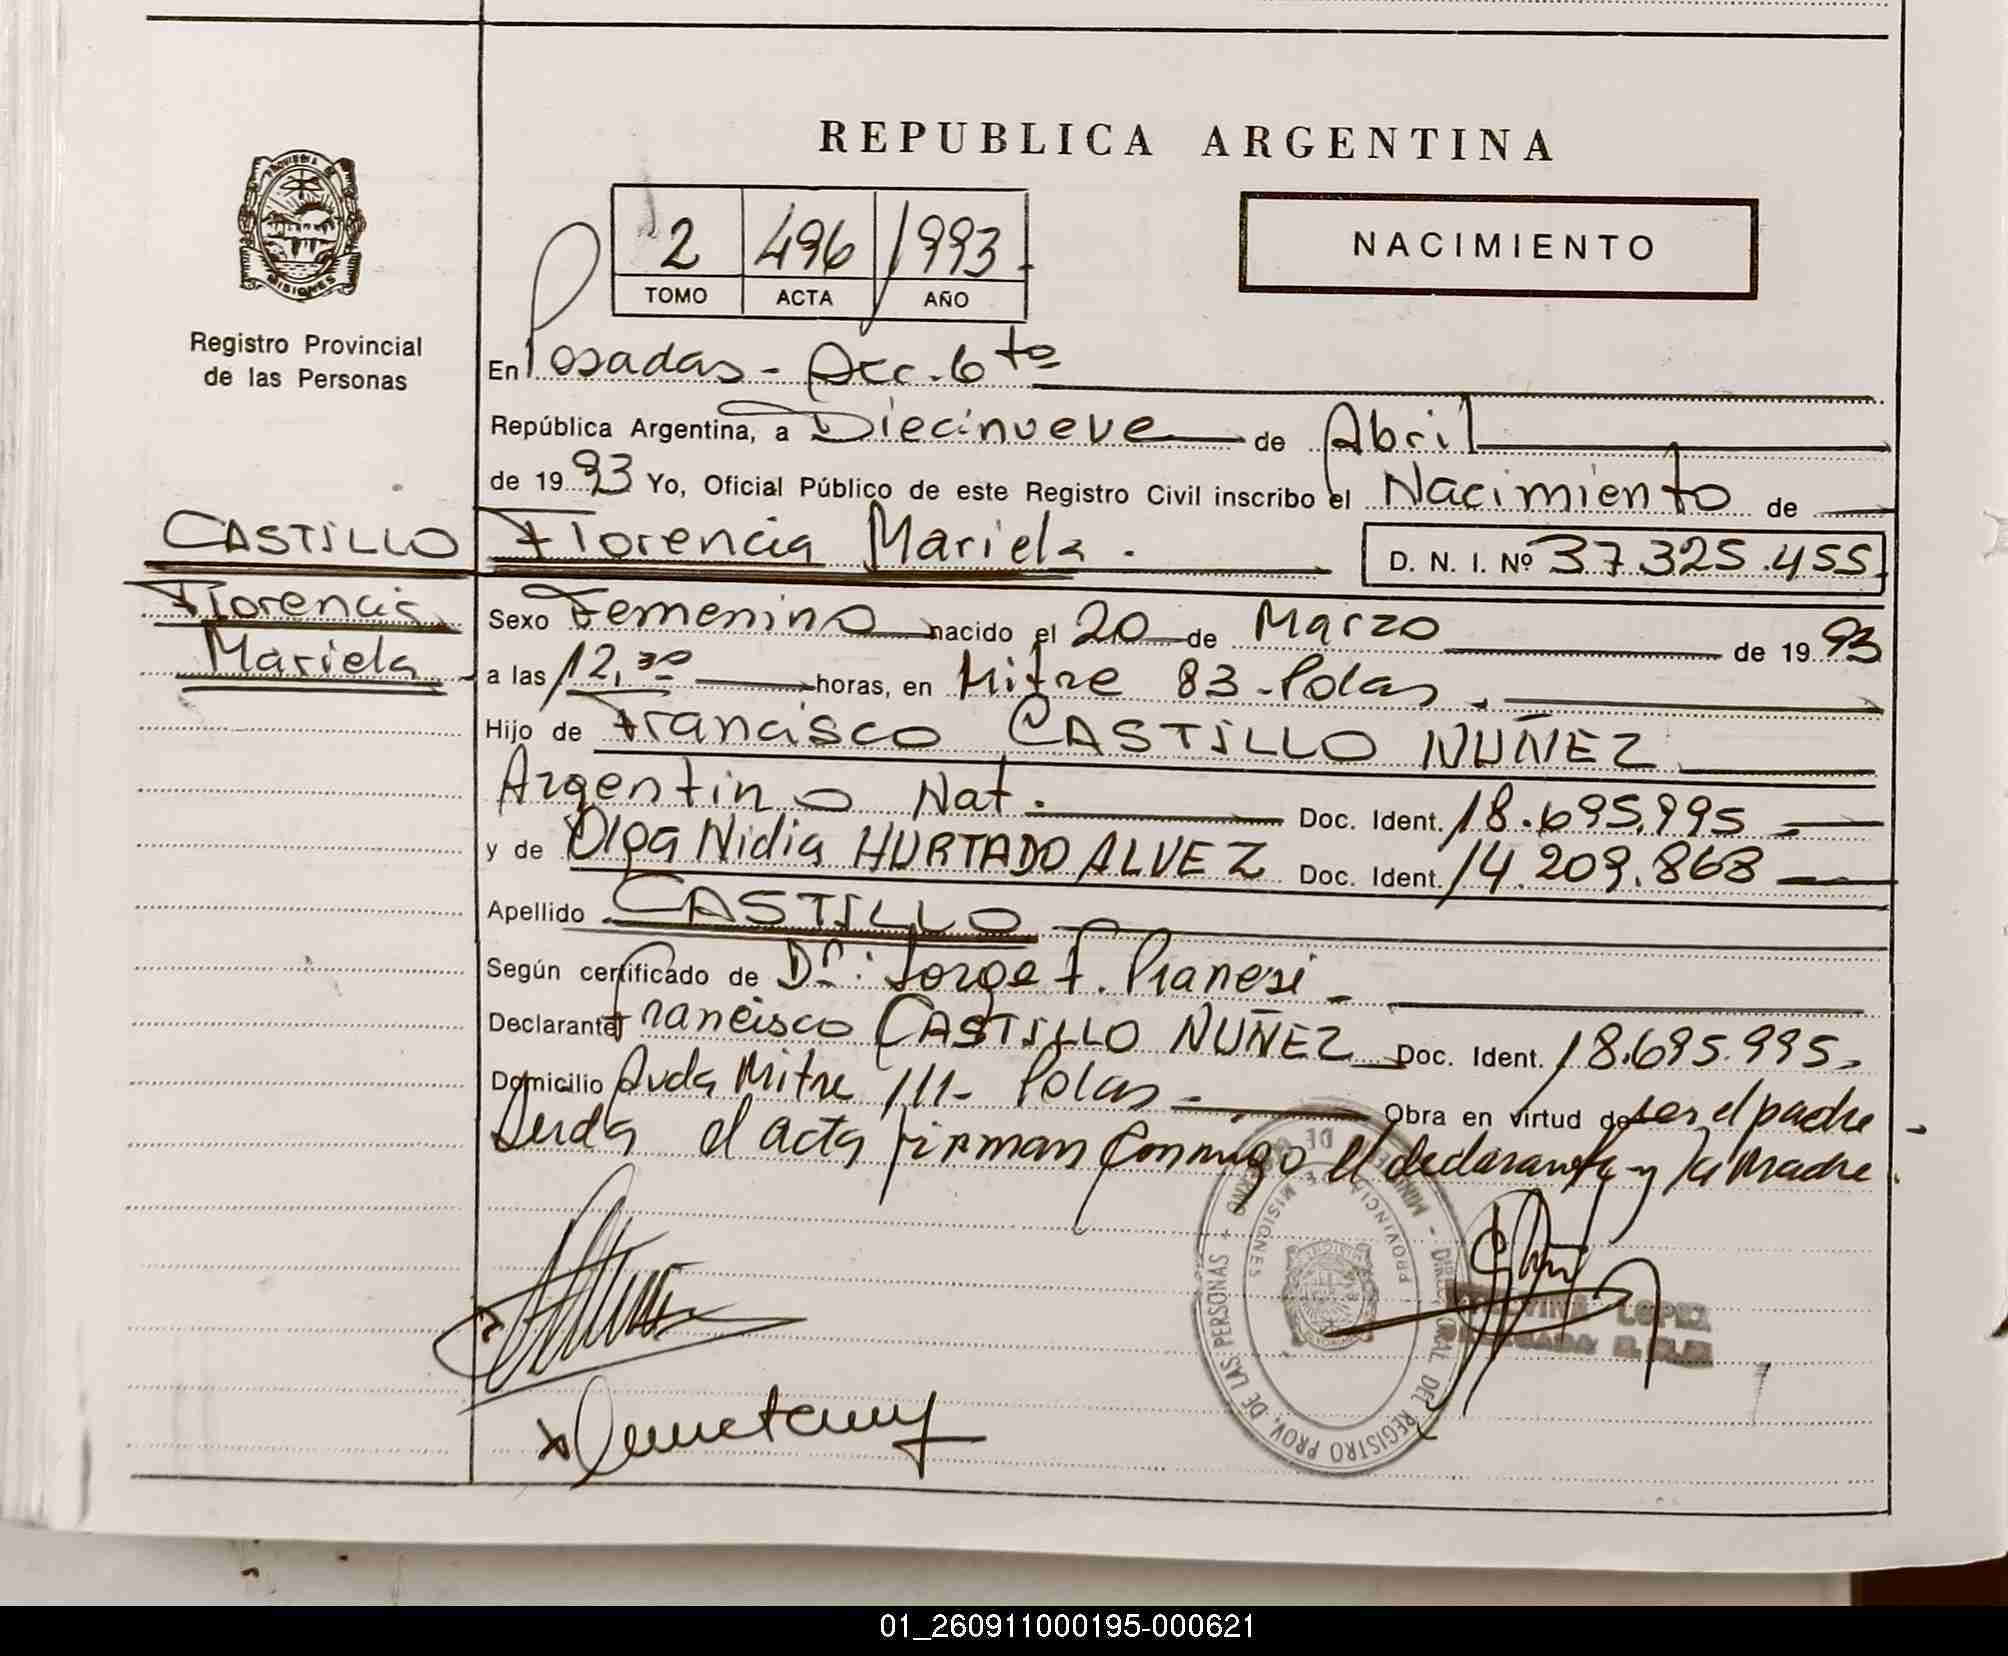 REPUBLICA ARGENTINA
2 496 1993
TOMO ACTA AÑO
NACIMIENTO
PROVINCIA DE
MISIONES
Registro Provincial
de las Personas
En Posadas - Secc. 6ta
República Argentina, a Diecinueve de Abril
de 1993 Yo, Oficial Público de este Registro Civil inscribo el Nacimiento de
CASTILLO
Florencia Mariela.
D. N. I. Nº 37.325.455
Florencia
Mariela
Sexo Femenino nacido el 20 de Marzo de 1993
a las 12,30 horas, en Mitre 83 - Pdas.
Hijo de Francisco CASTILLO NUÑEZ
Argentino Nat. Doc. Ident. 18.695.995
y de Olga Nidia HURTADO ALVEZ Doc. Ident. 14.209.868
Apellido CASTILLO
Según certificado de Dr. Jorge F. Pianesi
Declarante Francisco CASTILLO NUÑEZ Doc. Ident. 18.695.995
Domicilio Avda Mitre 111 - Pdas - Obra en virtud de ser el padre
Leida el acta firman conmigo el declarante y la Madre.
DIRECCION GRAL DEL REGISTRO PROV. DE LAS PERSONAS
PROVINCIA DE MISIONES
LOPEZ
01_260911000195-000621